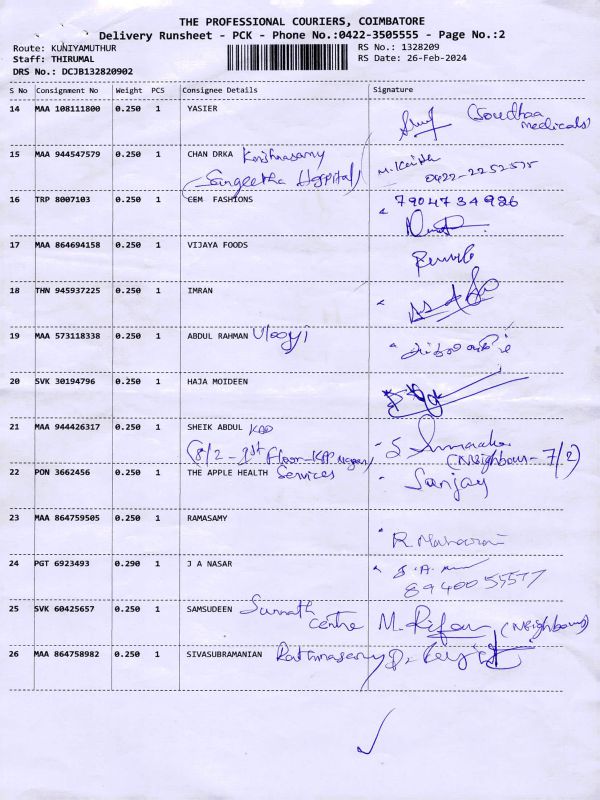 THE PROFESSIONAL COURIERS, COIMBATORE
Delivery Runsheet - PCK - Phone No.:0422-3505555 - Page No.:2
Route: KUNIYAMUTHUR RS No.: 1328209
Staff: THIRUMAL RS Date: 26-Feb-2024
DRS No.: DCJB132820902
S No Consignment No Weight PCS Consignee Details Signature
14 MAA 108111800 0.250 1 YASIER (Soudhaa
medicals)
15 MAA 944547579 0.250 1 CHAN DRKA Krishnasamy
(Sangeetha Hospital) 0422-2252575
16 TRP 8007103 0.250 1 CEM FASHIONS 7904734926
17 MAA 864694158 0.250 1 VIJAYA FOODS
18 THN 945937225 0.250 1 IMRAN
19 MAA 573118338 0.250 1 ABDUL RAHMAN
20 SVK 30194796 0.250 1 HAJA MOIDEEN
21 MAA 944426317 0.250 1 SHEIK ABDUL KAP
(8/2-1st Floor-KAP Nagar) (Neighbour-7/2)
22 PON 3662456 0.250 1 THE APPLE HEALTH Services Sanjay
23 MAA 864759505 0.250 1 RAMASAMY
24 PGT 6923493 0.290 1 J A NASAR
25 SVK 60425657 0.250 1 SAMSUDEEN Sunnath
Centre (Neighbour)
26 MAA 864758982 0.250 1 SIVASUBRAMANIAN Rathinasamy